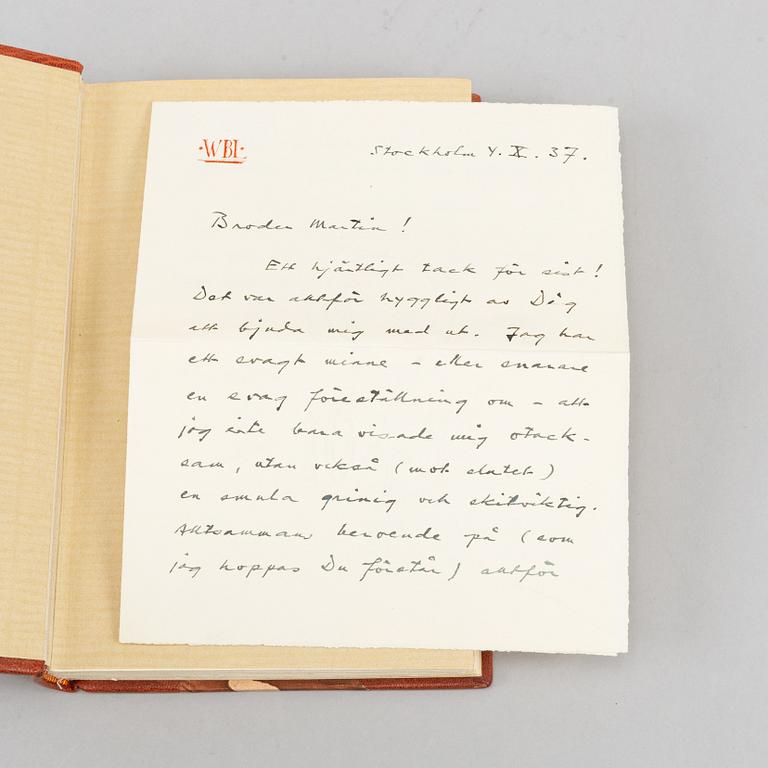 ·WBI·
Stockholm 4. X. 37.
Broder Martin!
Ett hjärtligt tack för sist!
Det var alltför hyggligt av Dig
att bjuda mig med ut. Jag har
ett svagt minne – eller snarare
en svag föreställning om – att
jag inte bara visade mig otack-
sam, utan också (mot slutet)
en smula grinig och skitviktig.
Alltsammans beroende på (som
jag hoppas Du förstår) alltför